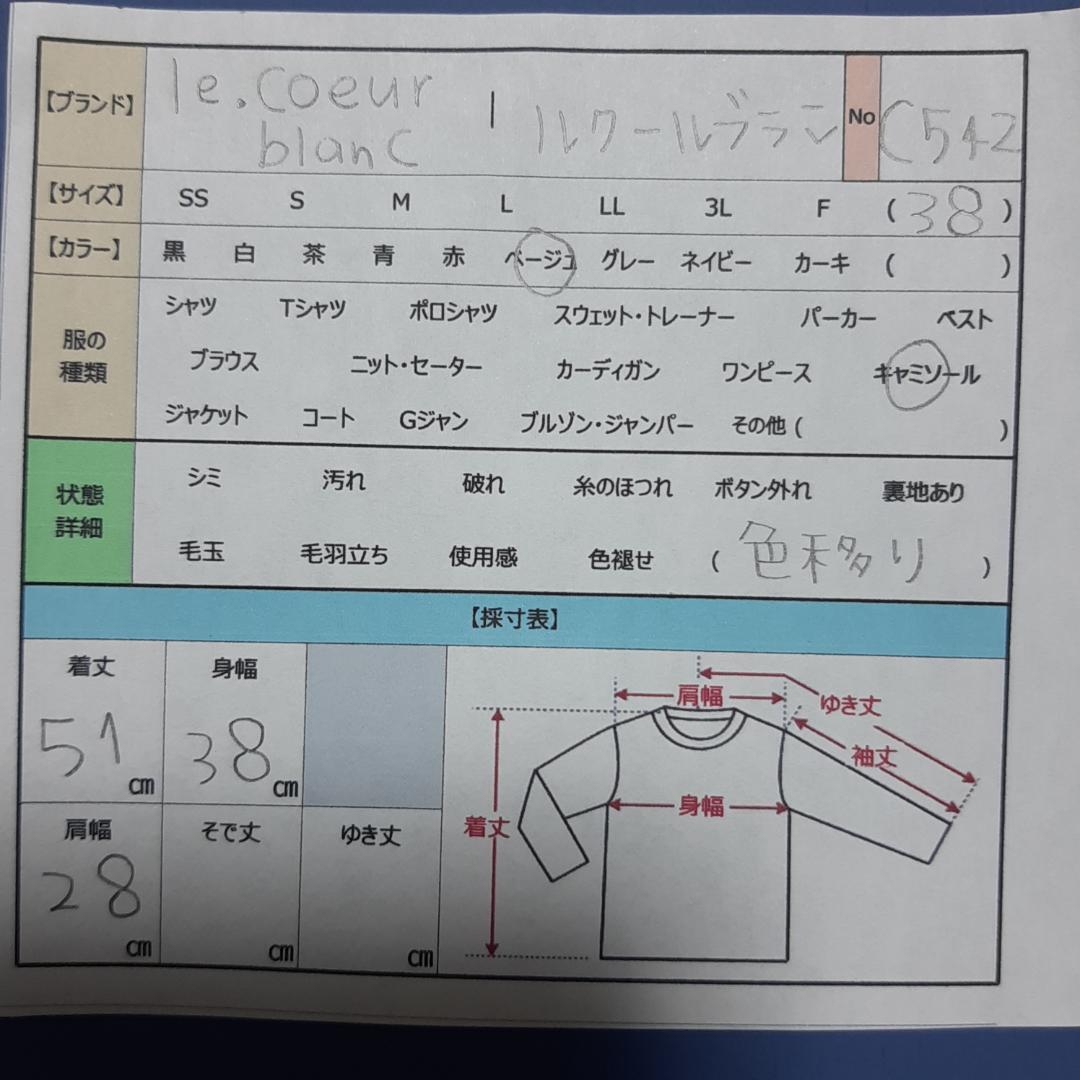 【ブランド】 le.coeur blanc | ルクールブラン No C542
【サイズ】 SS S M L LL 3L F (38)
【カラー】 黒 白 茶 青 赤 ベージュ グレー ネイビー カーキ ( )
服の種類
シャツ Tシャツ ポロシャツ スウェット・トレーナー パーカー ベスト
ブラウス ニット・セーター カーディガン ワンピース キャミソール
ジャケット コート Gジャン ブルゾン・ジャンパー その他 ( )
状態詳細
シミ 汚れ 破れ 糸のほつれ ボタン外れ 裏地あり
毛玉 毛羽立ち 使用感 色褪せ (色移り)
【採寸表】
着丈 身幅
51cm 38cm
肩幅 そで丈 ゆき丈
28cm cm cm
肩幅
ゆき丈
袖丈
身幅
着丈